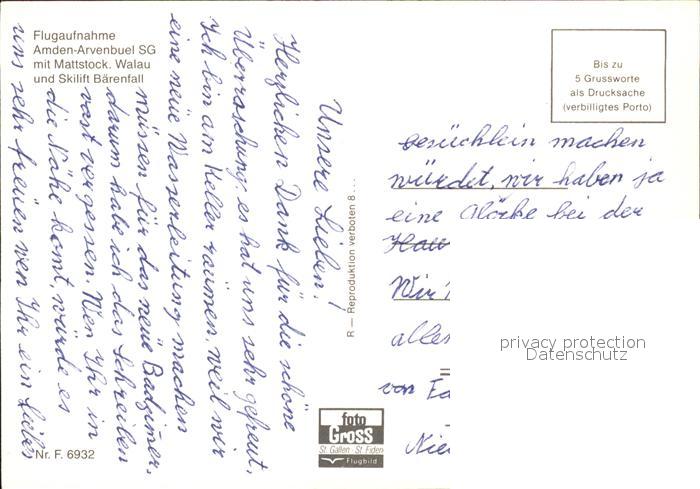 Flugaufnahme
Amden-Arvenbuel SG
mit Mattstock. Walau
und Skilift Bärenfall
Bis zu
5 Grussworte
als Drucksache
(verbilligtes Porto)
Unsere Lieben!
Herzlichen Dank für die schöne
Überraschung, es hat uns sehr gefreut,
Ich bin am Keller räumen, weil wir
eine neue Wasserleitung machen
müssen für das neue Badzimer,
darum habe ich das Schreiben
vast vergessen. Wen Ihr in
die Nähe komt, würde es
uns sehr freuen wen Ihr ein
machen
würdet, wir haben ja
eine Glöcke bei der
Wir
alles
von
R — Reproduktion verboten 8 ....
foto
Gross
St. Gallen · St. Fiden
Flugbild
Nr. F. 6932
privacy protection
Datenschutz